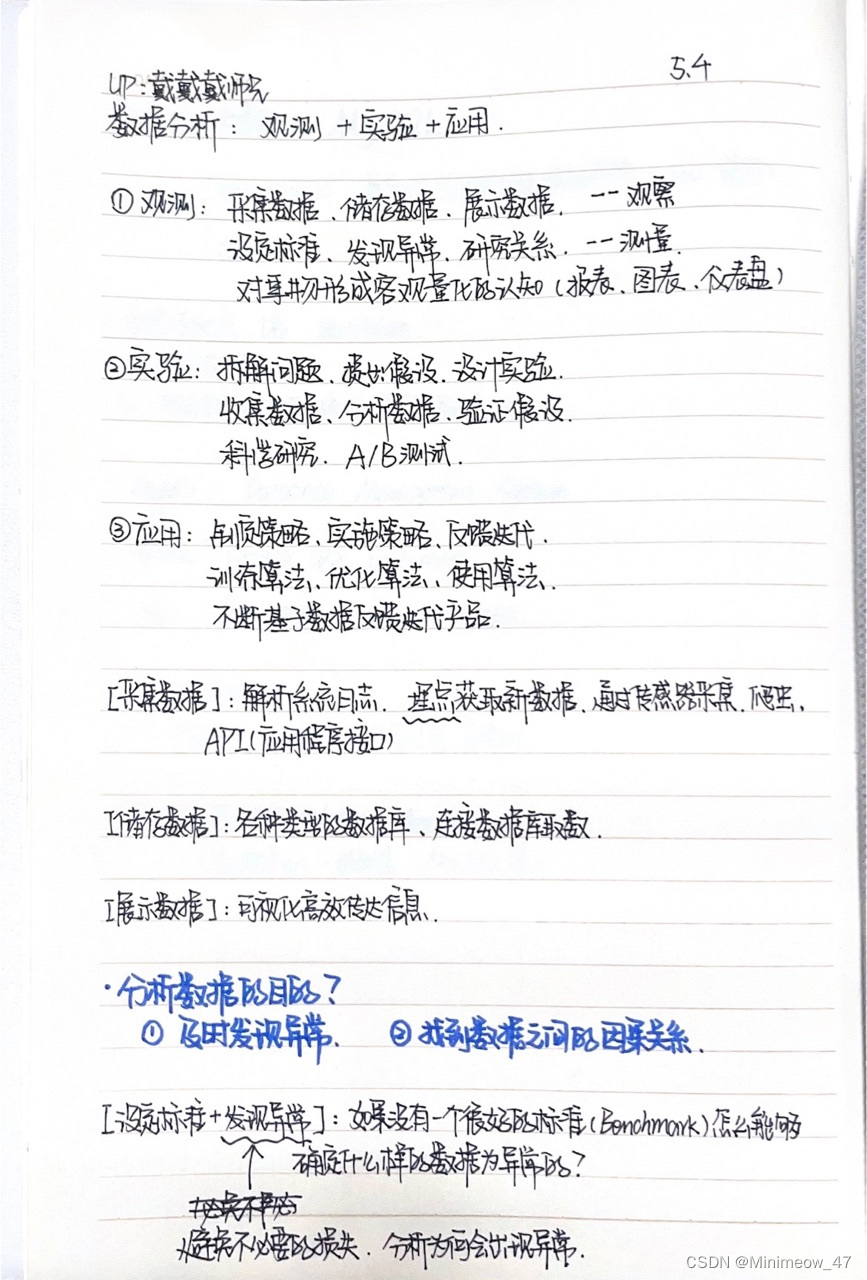 5.4
UP：戴戴戴师兄
数据分析：观测 + 实验 + 应用.
① 观测：采集数据、储存数据、展示数据. -- 观察
设定标准、发现异常、研究关系. -- 测量.
对事物形成客观量化的认知（报表、图表、仪表盘）
②实验：拆解问题、提出假设、设计实验.
收集数据、分析数据、验证假设.
科学研究. A/B测试.
③应用：制定策略、实施策略、反馈迭代.
训练算法、优化算法、使用算法.
不断基于数据反馈迭代产品.
[采集数据]：解析系统日志. 埋点获取新数据、通过传感器采集. 爬虫,
API(应用程序接口)
[储存数据]：各种类型的数据库、连接数据库取数.
[展示数据]：可视化高效传达信息.
·分析数据的目的？
① 及时发现异常. ② 找到数据之间的因果关系.
[设定标准+发现异常]：如果没有一个很好的标准(Benchmark)怎么能够
确定什么样的数据为异常的？
避免不必要的损失. 分析为何会出现异常.
CSDN @Minimeow_47